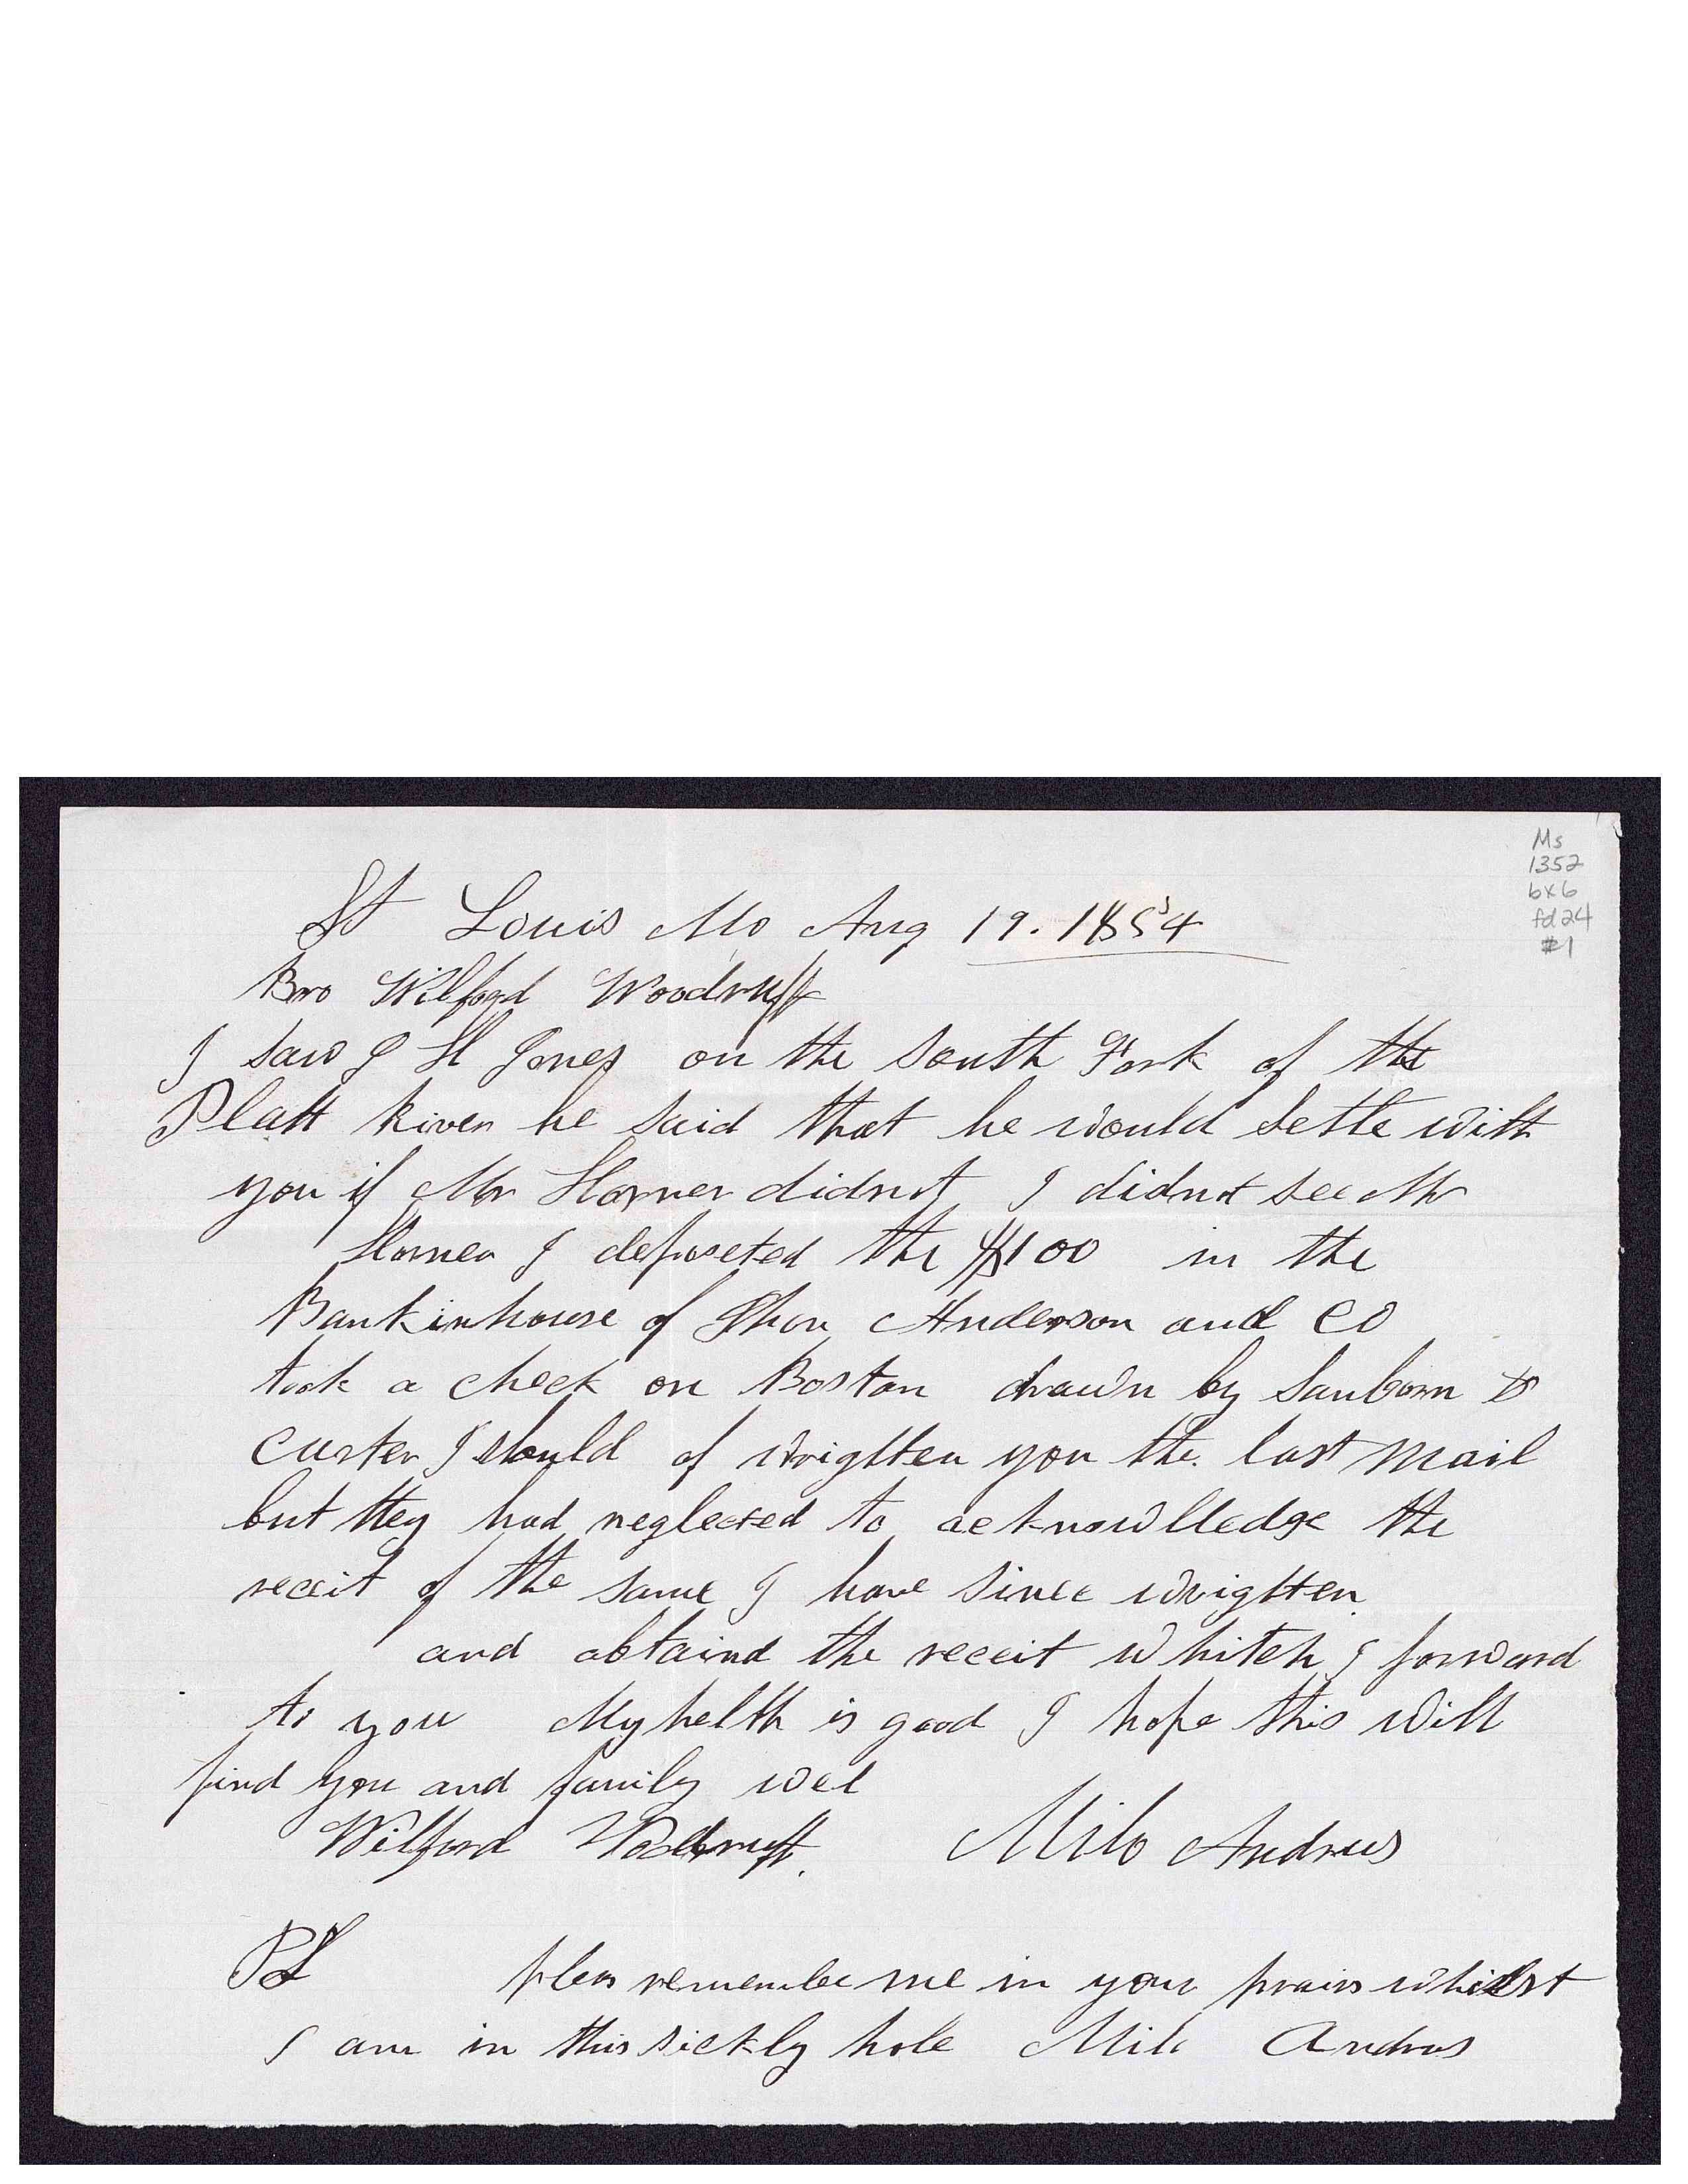 Ms
1352
bx 6
fd 24
#1
St Louis Mo Aug 19. 1854
Bro Wilford Woodruff
I saw J H Jones on the South Fork of the
Platt River he said that he would settle with
you if Mr Horner didnot I didnot see Mr
Horner I deposeted the $100 in the
Bankinhouse of Anderson and CO
took a check on Boston drawn by Sanborn &
Carter I should of wrighten you the last mail
but they had neglected to acknowlledge the
receit of the same I have since wrighten
and obtaind the receit whitch I forward
to you My helth is good I hope this will
find you and family wel
Wilford Woodruff. Milo Andrus
PS pleas remember me in your prairs whilst
I am in this sickly hole Milo Andrus